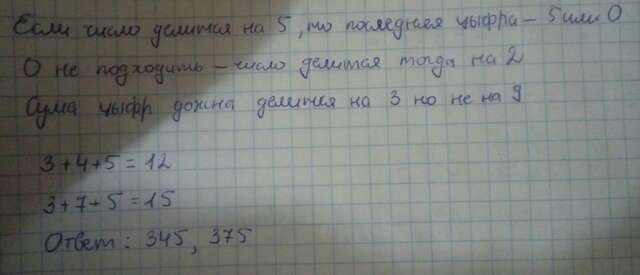 Если число делится на 5, то последняя цыфра – 5 или 0
0 не подходить – число делится тогда на 2
Сума цыфр должна делится на 3 но не на 9
3+4+5=12
3+7+5=15
Ответ: 345, 375